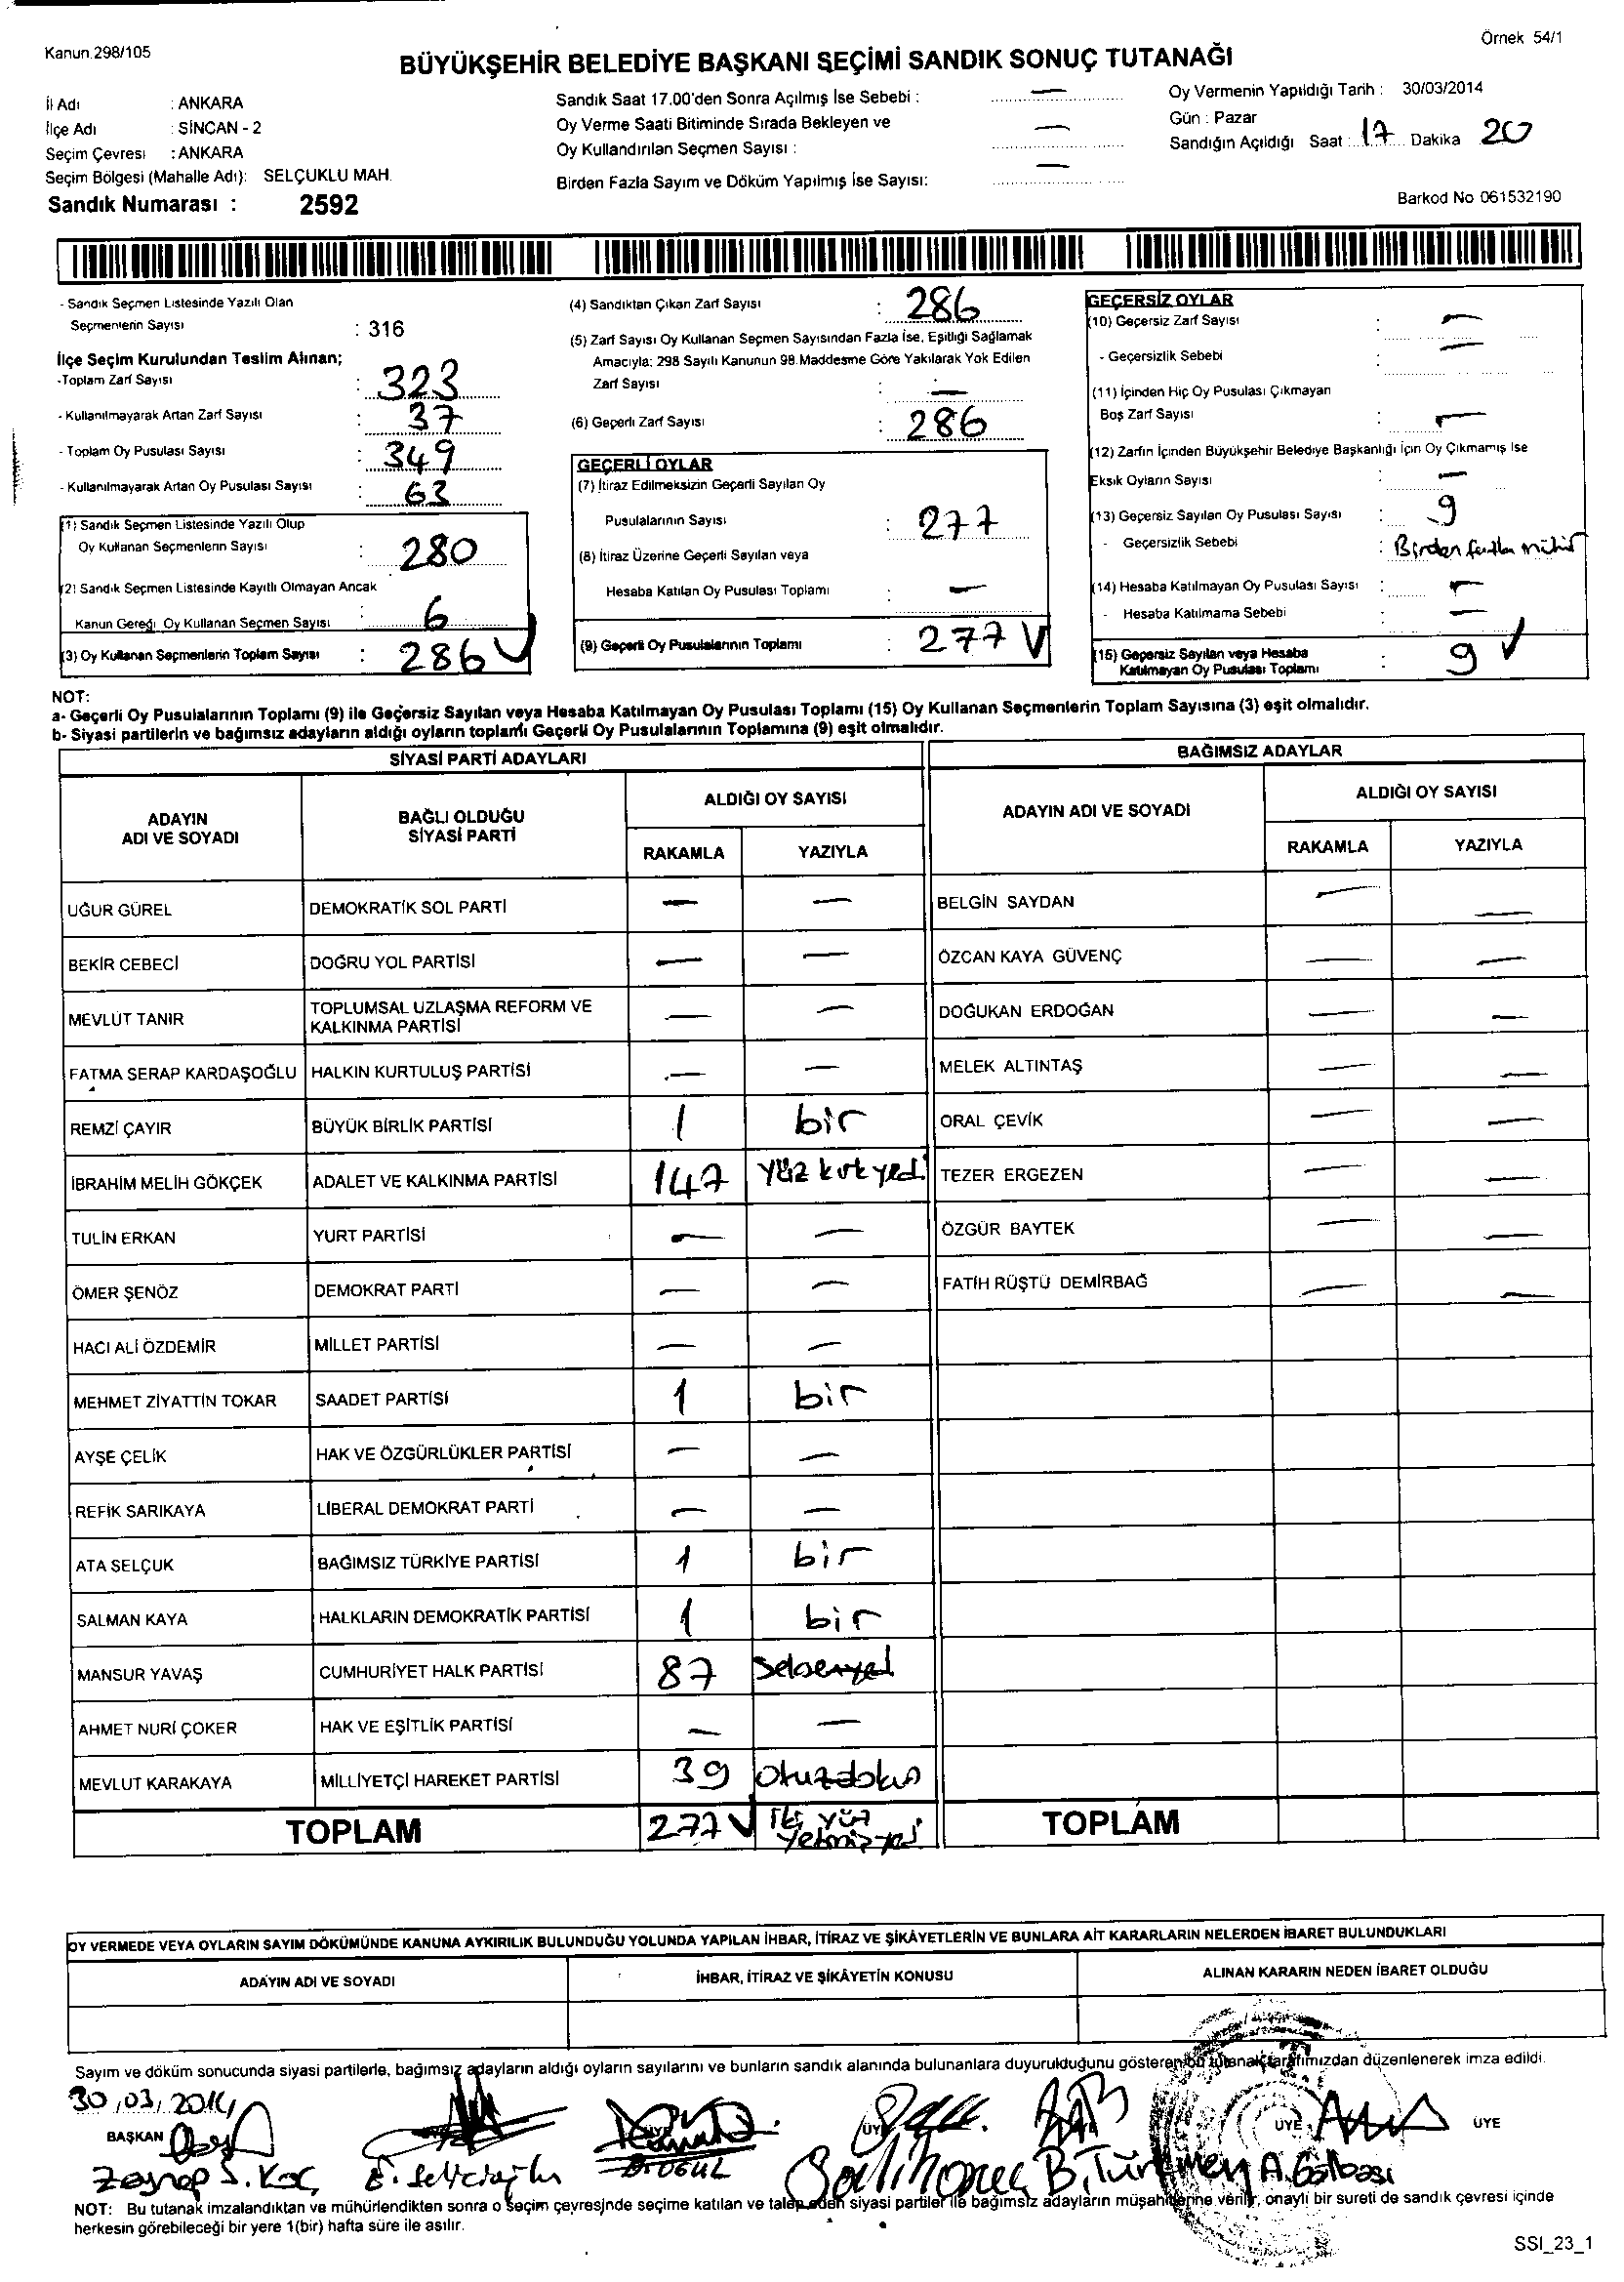 Kanun 298/105
Örnek 54/1
BÜYÜKŞEHİR BELEDİYE BAŞKANI SEÇİMİ SANDIK SONUÇ TUTANAĞI
İl Adı : ANKARA
İlçe Adı : SİNCAN - 2
Seçim Çevresi : ANKARA
Seçim Bölgesi (Mahalle Adı): SELÇUKLU MAH.
Sandık Numarası : 2592
Sandık Saat 17.00'den Sonra Açılmış İse Sebebi : —
Oy Verme Saati Bitiminde Sırada Bekleyen ve
Oy Kullandırılan Seçmen Sayısı : —
Birden Fazla Sayım ve Döküm Yapılmış İse Sayısı: —
Oy Vermenin Yapıldığı Tarih : 30/03/2014
Gün : Pazar
Sandığın Açıldığı Saat : 17 Dakika 20
Barkod No 061532190
- Sandık Seçmen Listesinde Yazılı Olan
Seçmenlerin Sayısı : 316
İlçe Seçim Kurulundan Teslim Alınan;
-Toplam Zarf Sayısı : 323
- Kullanılmayarak Artan Zarf Sayısı : 37
- Toplam Oy Pusulası Sayısı : 349
- Kullanılmayarak Artan Oy Pusulası Sayısı : 63
(1) Sandık Seçmen Listesinde Yazılı Olup
Oy Kullanan Seçmenlerin Sayısı : 280
(2) Sandık Seçmen Listesinde Kayıtlı Olmayan Ancak
Kanun Gereği Oy Kullanan Seçmen Sayısı : 6
(3) Oy Kullanan Seçmenlerin Toplam Sayısı : 286
(4) Sandıktan Çıkan Zarf Sayısı : 286
(5) Zarf Sayısı Oy Kullanan Seçmen Sayısından Fazla İse, Eşitliği Sağlamak
Amacıyla; 298 Sayılı Kanunun 98.Maddesine Göre Yakılarak Yok Edilen
Zarf Sayısı : —
(6) Geçerli Zarf Sayısı : 286
GEÇERLİ OYLAR
(7) İtiraz Edilmeksizin Geçerli Sayılan Oy
Pusulalarının Sayısı : 277
(8) İtiraz Üzerine Geçerli Sayılan veya
Hesaba Katılan Oy Pusulası Toplamı : —
(9) Geçerli Oy Pusulalarının Toplamı : 277
GEÇERSİZ OYLAR
(10) Geçersiz Zarf Sayısı : —
- Geçersizlik Sebebi : —
(11) İçinden Hiç Oy Pusulası Çıkmayan
Boş Zarf Sayısı : —
(12) Zarfın İçinden Büyükşehir Belediye Başkanlığı İçin Oy Çıkmamış İse
Eksik Oyların Sayısı : —
(13) Geçersiz Sayılan Oy Pusulası Sayısı : 9
- Geçersizlik Sebebi : Birden fazla mühür
(14) Hesaba Katılmayan Oy Pusulası Sayısı : —
- Hesaba Katılmama Sebebi : —
(15) Geçersiz Sayılan veya Hesaba
Katılmayan Oy Pusulası Toplamı : 9
NOT:
a- Geçerli Oy Pusulalarının Toplamı (9) ile Geçersiz Sayılan veya Hesaba Katılmayan Oy Pusulası Toplamı (15) Oy Kullanan Seçmenlerin Toplam Sayısına (3) eşit olmalıdır.
b- Siyasi partilerin ve bağımsız adayların aldığı oyların toplamı Geçerli Oy Pusulalarının Toplamına (9) eşit olmalıdır.
SİYASİ PARTİ ADAYLARI
ADAYIN ADI VE SOYADI BAĞLI OLDUĞU SİYASİ PARTİ ALDIĞI OY SAYISI
RAKAMLA YAZIYLA
UĞUR GÜREL DEMOKRATİK SOL PARTİ — —
BEKİR CEBECİ DOĞRU YOL PARTİSİ — —
MEVLÜT TANIR TOPLUMSAL UZLAŞMA REFORM VE KALKINMA PARTİSİ — —
FATMA SERAP KARDAŞOĞLU HALKIN KURTULUŞ PARTİSİ — —
REMZİ ÇAYIR BÜYÜK BİRLİK PARTİSİ 1 bir
İBRAHİM MELİH GÖKÇEK ADALET VE KALKINMA PARTİSİ 147 yüz kırk yedi
TULİN ERKAN YURT PARTİSİ — —
ÖMER ŞENÖZ DEMOKRAT PARTİ — —
HACI ALİ ÖZDEMİR MİLLET PARTİSİ — —
MEHMET ZİYATTİN TOKAR SAADET PARTİSİ 1 bir
AYŞE ÇELİK HAK VE ÖZGÜRLÜKLER PARTİSİ — —
REFİK SARIKAYA LİBERAL DEMOKRAT PARTİ — —
ATA SELÇUK BAĞIMSIZ TÜRKİYE PARTİSİ 1 bir
SALMAN KAYA HALKLARIN DEMOKRATİK PARTİSİ 1 bir
MANSUR YAVAŞ CUMHURİYET HALK PARTİSİ 87 seksenyedi
AHMET NURİ ÇOKER HAK VE EŞİTLİK PARTİSİ — —
MEVLUT KARAKAYA MİLLİYETÇİ HAREKET PARTİSİ 39 otuzdokuz
TOPLAM 277 iki yüz yetmiş yedi
BAĞIMSIZ ADAYLAR
ADAYIN ADI VE SOYADI ALDIĞI OY SAYISI
RAKAMLA YAZIYLA
BELGİN SAYDAN — —
ÖZCAN KAYA GÜVENÇ — —
DOĞUKAN ERDOĞAN — —
MELEK ALTINTAŞ — —
ORAL ÇEVİK — —
TEZER ERGEZEN — —
ÖZGÜR BAYTEK — —
FATİH RÜŞTÜ DEMİRBAĞ — —
TOPLAM
OY VERMEDE VEYA OYLARIN SAYIM DÖKÜMÜNDE KANUNA AYKIRILIK BULUNDUĞU YOLUNDA YAPILAN İHBAR, İTİRAZ VE ŞİKÂYETLERİN VE BUNLARA AİT KARARLARIN NELERDEN İBARET BULUNDUKLARI
ADAYIN ADI VE SOYADI İHBAR, İTİRAZ VE ŞİKÂYETİN KONUSU ALINAN KARARIN NEDEN İBARET OLDUĞU
Sayım ve döküm sonucunda siyasi partilerle, bağımsız adayların aldığı oyların sayılarını ve bunların sandık alanında bulunanlara duyurulduğunu gösteren bu tutanak tarafımızdan düzenlenerek imza edildi.
30.03.2014
BAŞKAN ÜYE ÜYE ÜYE ÜYE
Zeynep S. Koç B. Türkmen A. Gölbaşı
NOT: Bu tutanak imzalandıktan ve mühürlendikten sonra o seçim çevresinde seçime katılan ve talep eden siyasi partiler ile bağımsız adayların müşahitlerine verilir, onaylı bir sureti de sandık çevresi içinde
herkesin görebileceği bir yere 1(bir) hafta süre ile asılır.
SSI_23_1